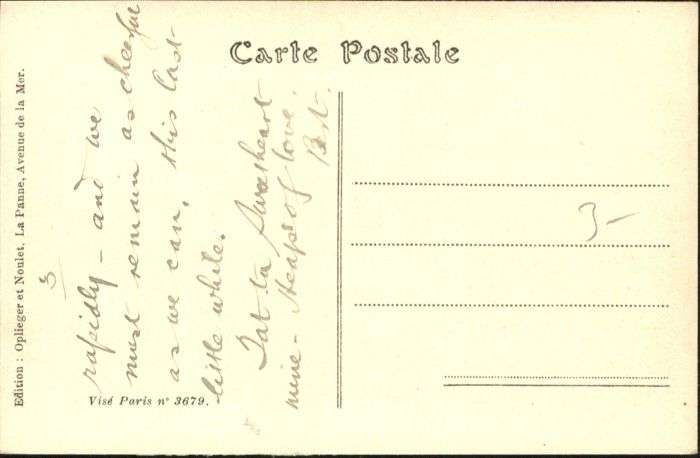 Carte Postale
Edition : Oplieger et Noulet, La Panne, Avenue de la Mer.
3
rapidly - and we
must remain as cheerful
as we can, this last
little while.
Tat ta Sweetheart
mine - Heaps of love.
Bert.
3-
Visé Paris nº 3679.